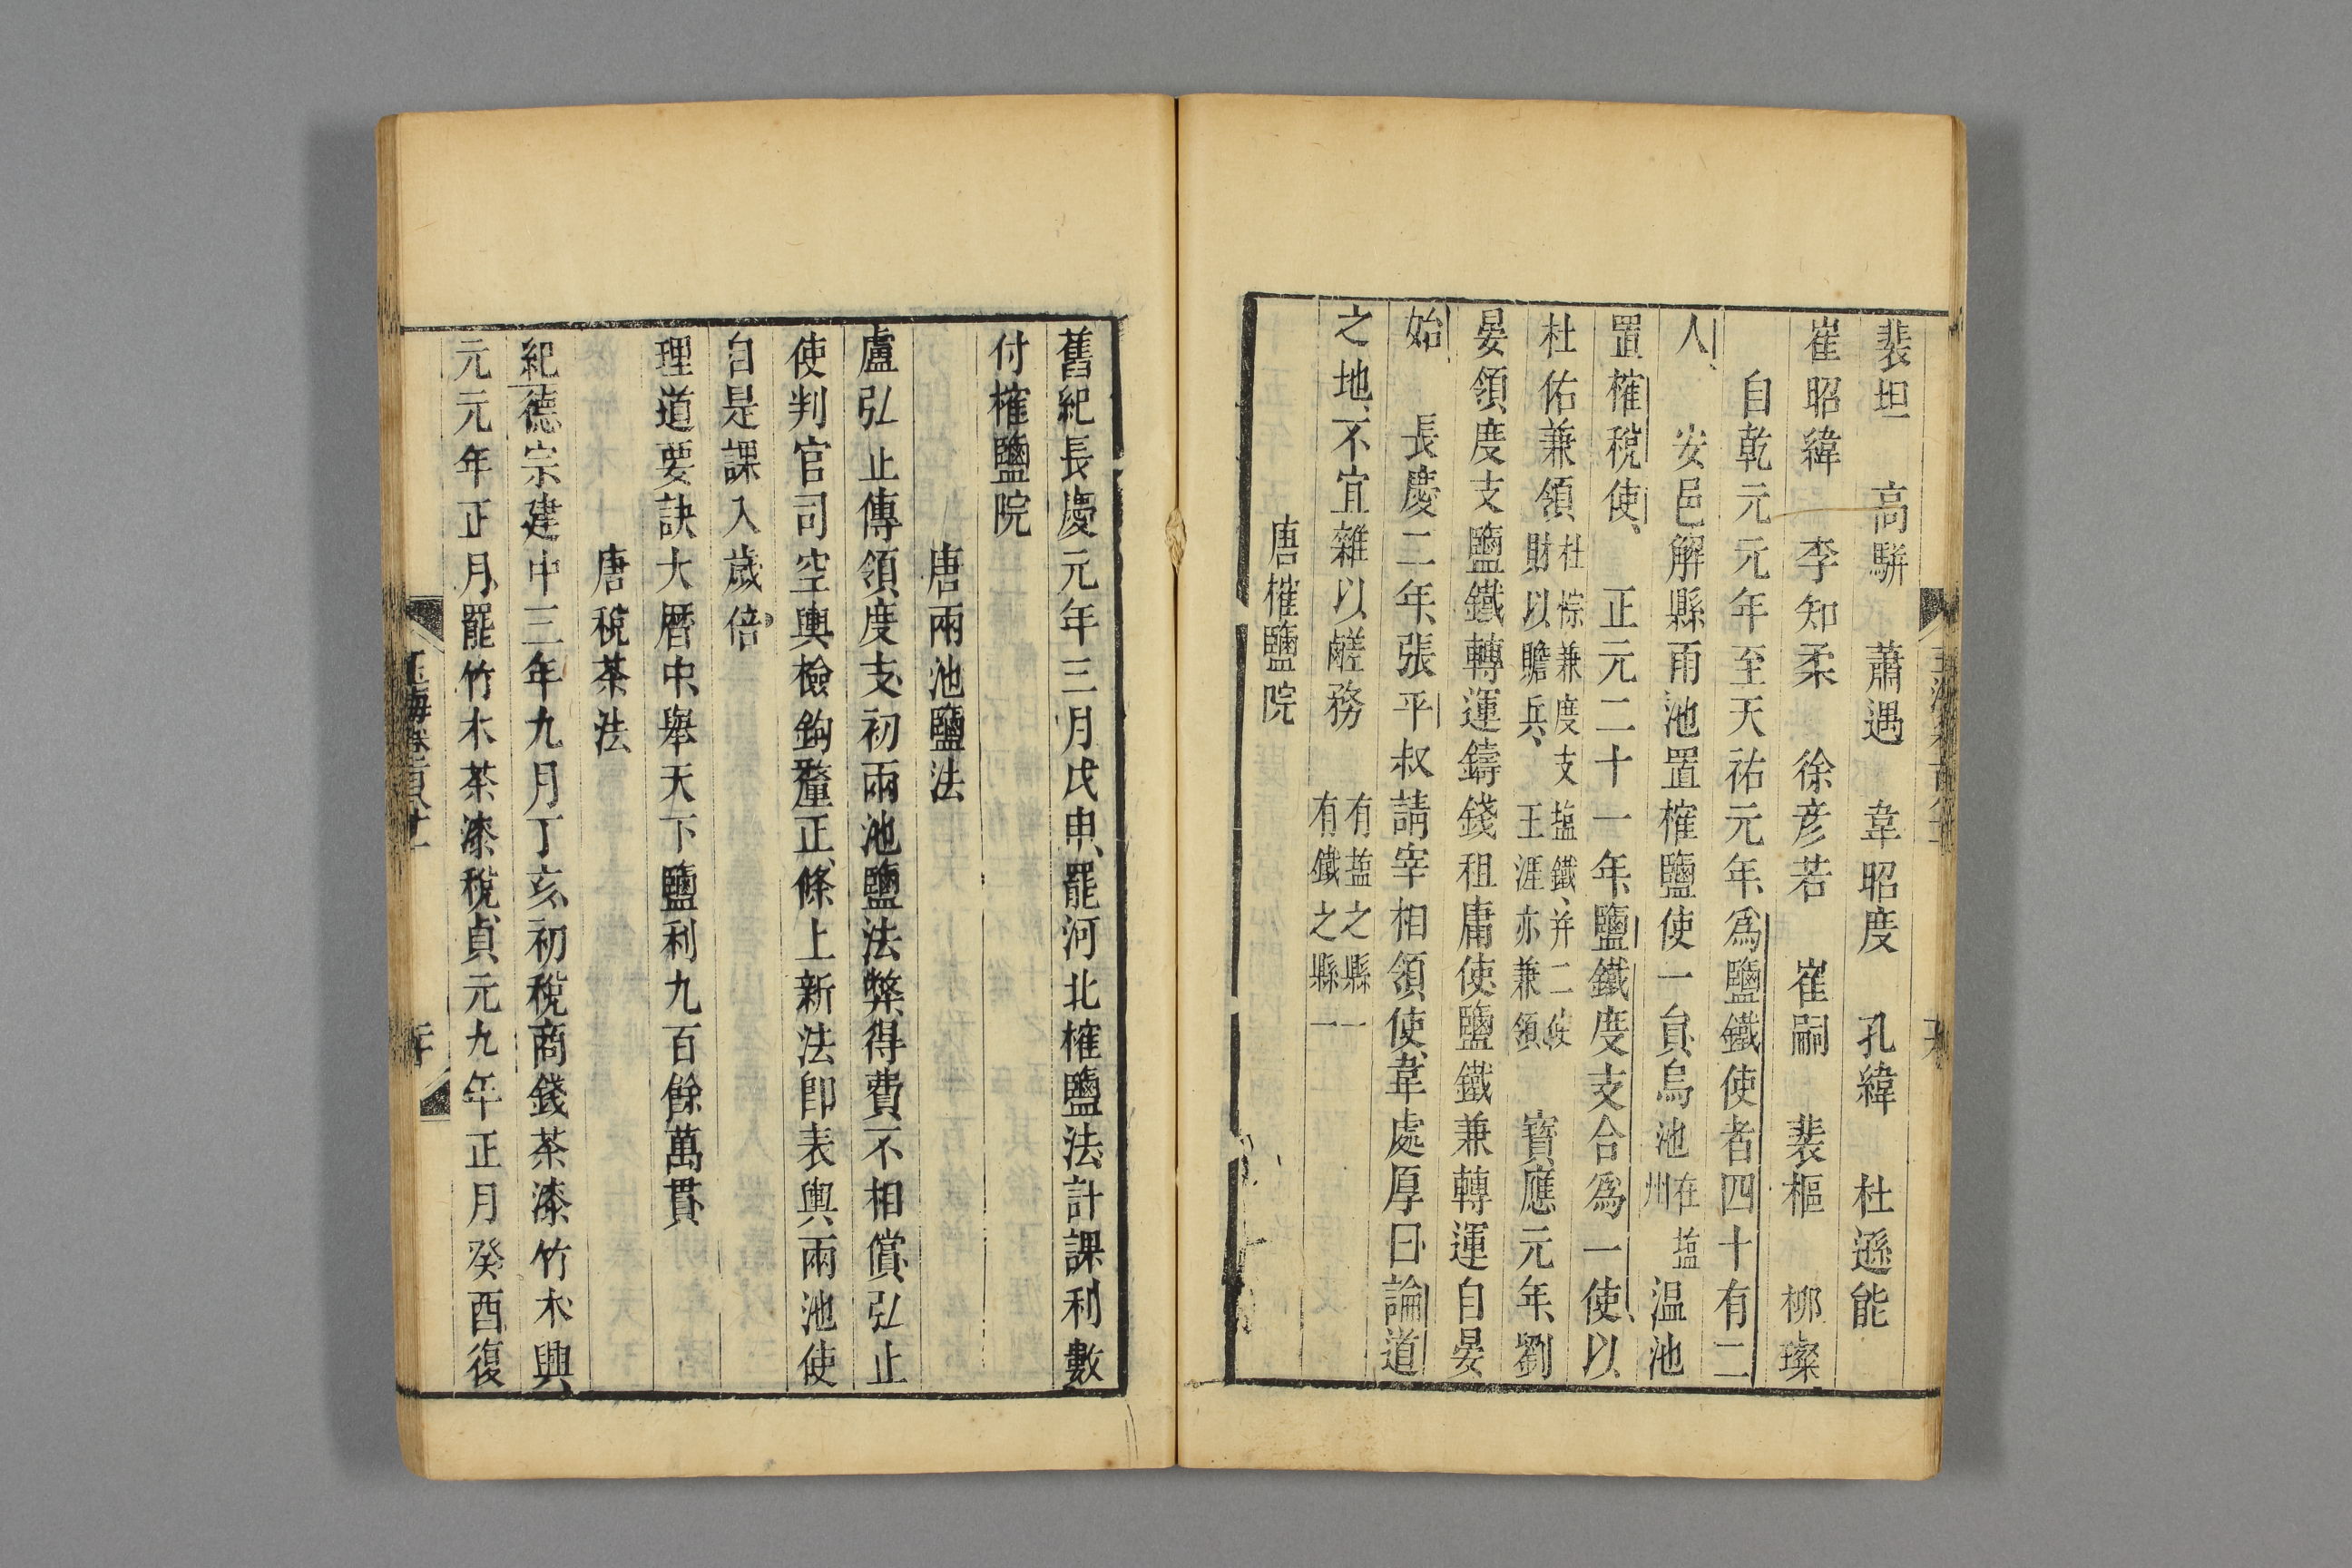 裴坦　高駢　蕭遇　韋昭度　孔緯　杜遜能
崔昭緯　李知柔　徐彦若　崔嗣　裴樞　柳璨
自乾元元年至天祐元年爲鹽鐵使者四十有二
人　安邑解縣兩池置榷鹽使一員烏池在塩州　温池
置榷稅使　正元二十一年鹽鐵度支合爲一使以
杜佑兼領杜悰兼度支塩鐵并二使財以贍兵王涯亦兼領　寶應元年劉
晏領度支鹽鐵轉運鑄錢租庸使鹽鐵兼轉運自晏
始　長慶二年張平叔請宰相領使韋處厚曰論道
之地不宜雜以鹾務　有塩之縣一有鐵之縣一
唐榷鹽院
舊紀長慶元年三月戊申罷河北榷鹽法計課利數
付榷鹽院
唐兩池鹽法
盧弘止傳領度支初兩池鹽法弊得費不相償弘止
使判官司空輿檢鉤釐正條上新法卽表輿兩池使
自是課入歲倍
理道要訣大曆中舉天下鹽利九百餘萬貫
唐稅茶法
紀德宗建中三年九月丁亥初稅商錢茶漆竹木興
元元年正月罷竹木茶漆稅貞元九年正月癸酉復